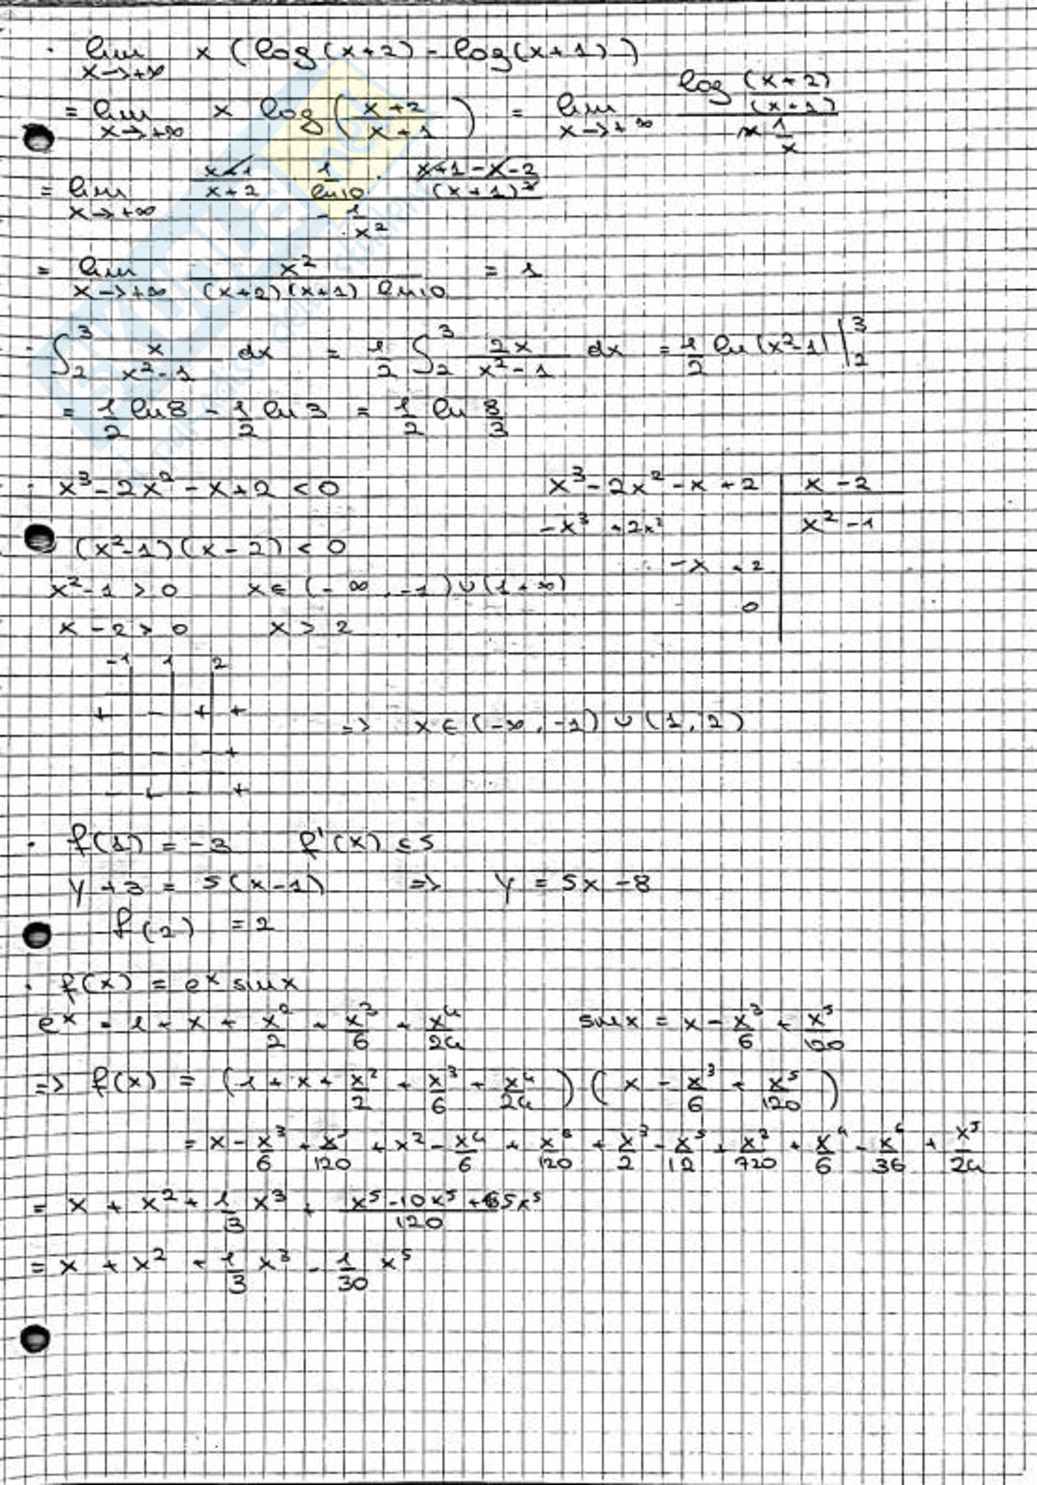 · lim x→+∞ x (log(x+2) - log(x+1))
= lim x→+∞ x log((x+2)/(x+1)) = lim x→+∞ log((x+2)/(x+1)) / (1/x)
= lim x→+∞ ((x+1)/(x+2) · 1/ln10 · (x+1-x-2)/(x+1)²) / (-1/x²)
= lim x→+∞ x² / ((x+2)(x+1) ln10) = 1
· ∫₂³ x/(x²-1) dx = 1/2 ∫₂³ 2x/(x²-1) dx = 1/2 ln|x²-1| |₂³
= 1/2 ln8 - 1/2 ln3 = 1/2 ln 8/3
· x³-2x²-x+2 < 0
(x²-1)(x-2) < 0
x²-1 > 0 x ∈ (-∞, -1) ∪ (1+∞)
x-2 > 0 x > 2
x³-2x²-x+2 | x-2
-x³ +2x² | x²-1
-x +2
0
-1 1 2
+ - + +
- - - +
=> x ∈ (-∞, -1) ∪ (1, 2)
· f(1) = -3 f'(x) ≤ 5
y+3 = 5(x-1) => y = 5x-8
f(2) = 2
· f(x) = eˣ sin x
eˣ = 1 + x + x²/2 + x³/6 + x⁴/24 sin x = x - x³/6 + x⁵/120
=> f(x) = (1 + x + x²/2 + x³/6 + x⁴/24) (x - x³/6 + x⁵/120)
= x - x³/6 + x⁵/120 + x² - x⁴/6 + x⁶/120 + x³/2 - x⁵/12 + x²/720 + x⁴/6 - x⁶/36 + x⁵/24
= x + x² + 1/3 x³ + (x⁵-10x⁵+5x⁵)/120
= x + x² + 1/3 x³ - 1/30 x⁵